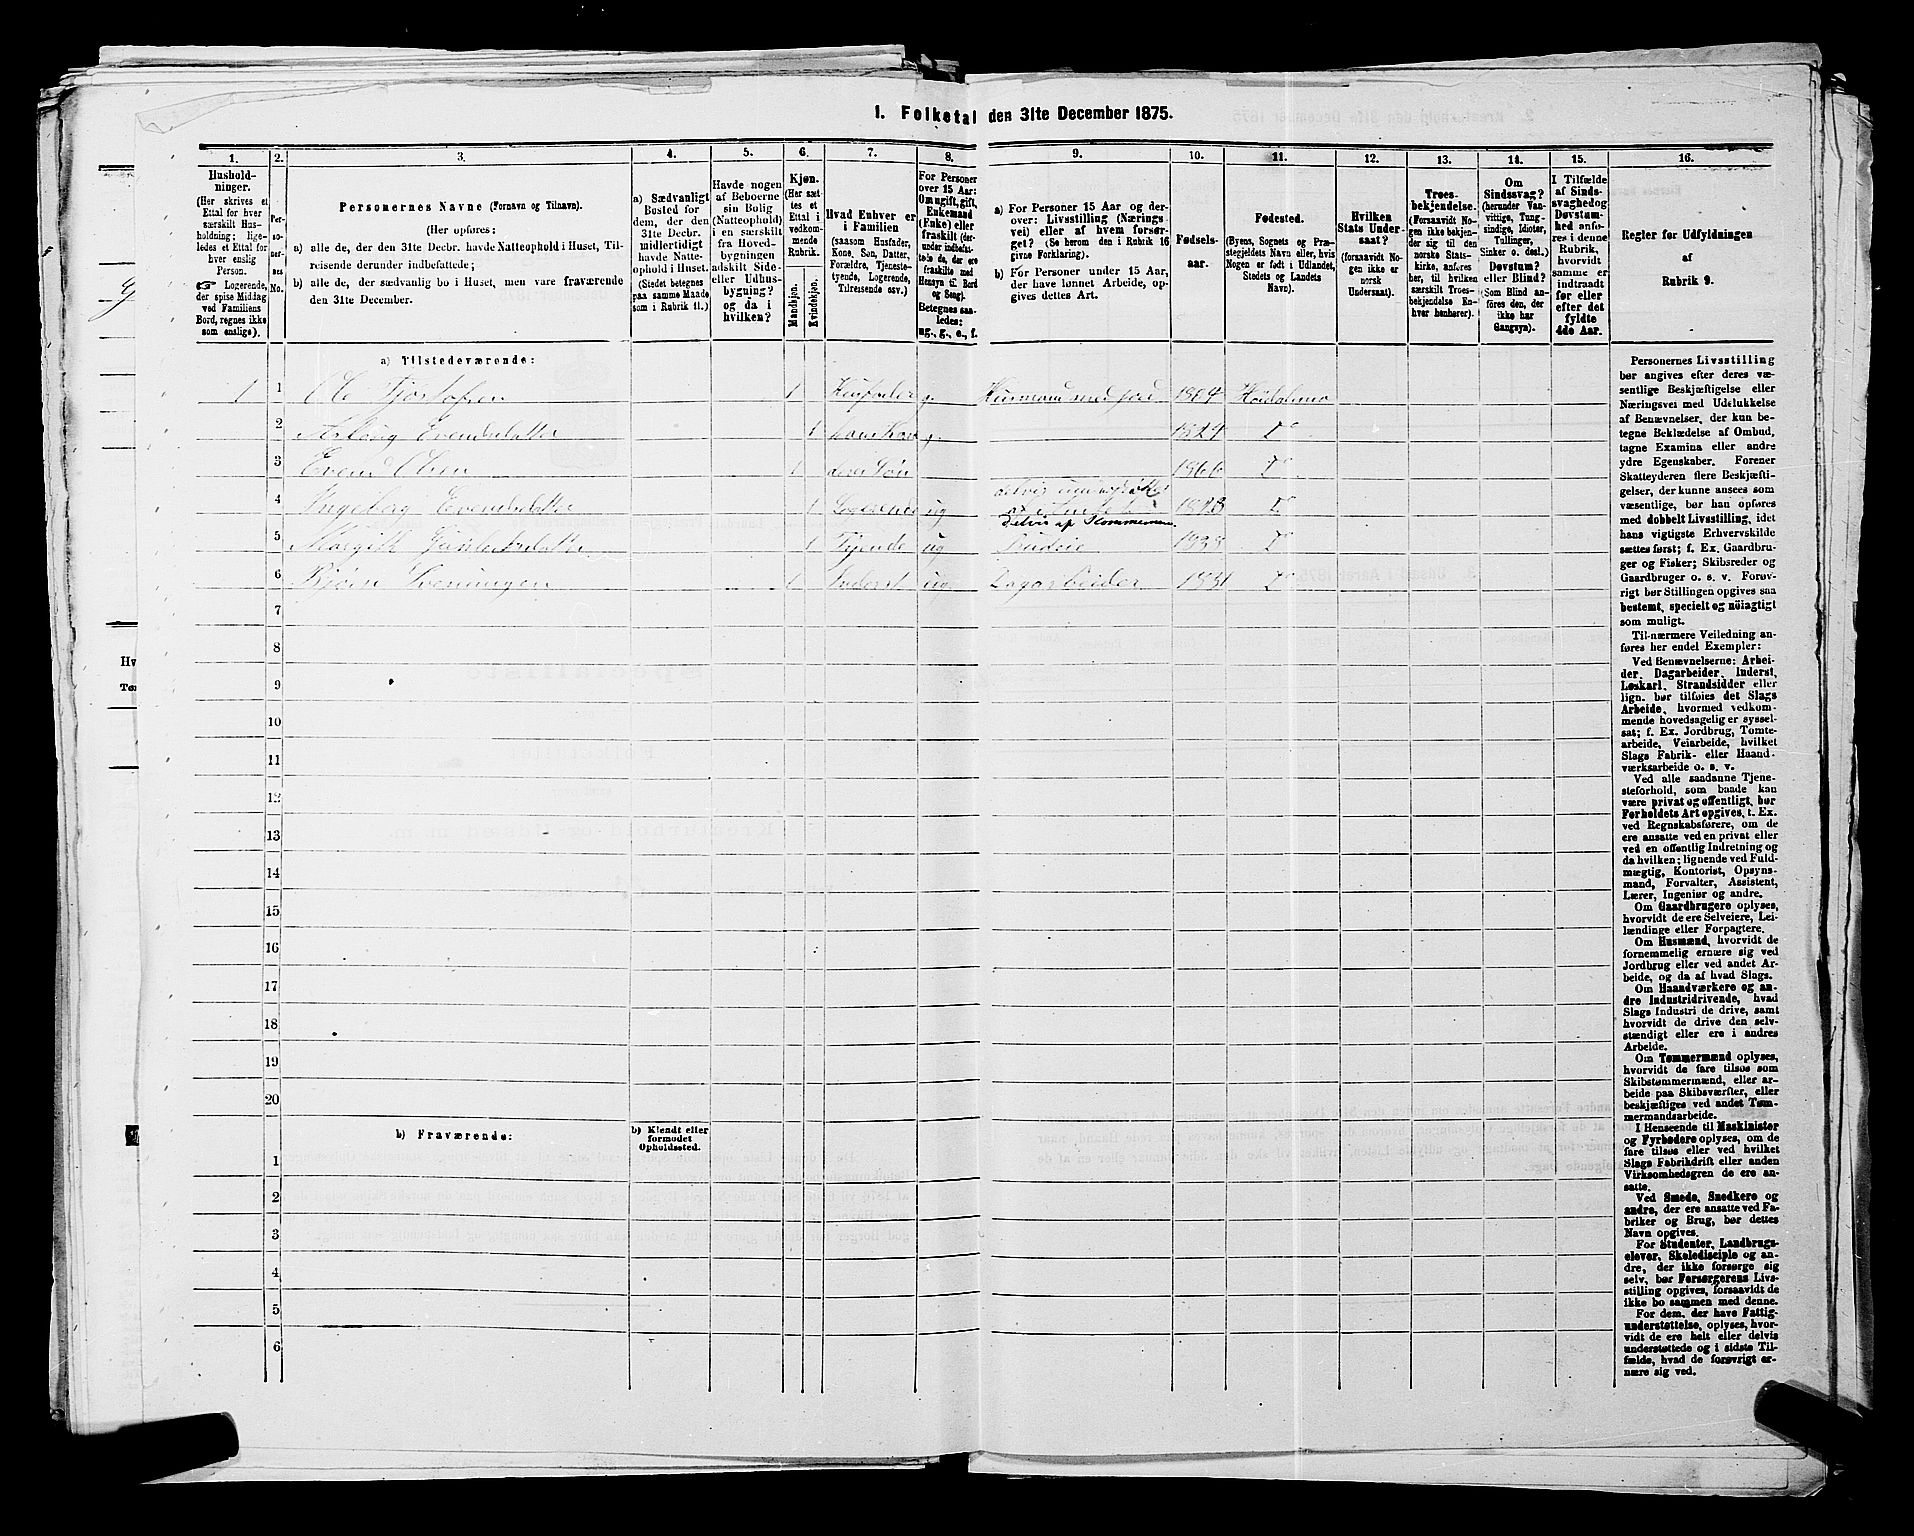 1. Folketal den 31te December 1875.
1. 2. 3. 4. 5. 6. 7. 8. 9. 10. 11. 12. 13. 14. 15. 16.
Hushold-
ninger.
(Her skrives et
Ettal for hver
særskilt Hus-
holdning; lige-
ledes et Ettal for
hver enslig
Person.
☞ Logerende,
der spise Middag
ved Familiens
Bord, regnes ikke
som enslige).
Per-
so-
ner-
nes
No.
Personernes Navne (Fornavn og Tilnavn).
(Her opføres:
a) alle de, der den 31te Decbr. havde Natteophold i Huset, Til-
reisende derunder indbefattede;
b) alle de, der sædvanlig bo i Huset, men vare fraværende
den 31te December.
a) Sædvanligt
Bosted for
dem, der den
31te Decbr.
midlertidigt
havde Natte-
ophold i Huset.
(Stedet betegnes
paa samme Maade
som i Rubrik 11.)
Havde nogen
af Beboerne
sin Bolig
(Natteophold)
i en særskilt
fra Hoved-
bygningen
adskilt Side-
eller Udhus-
bygning?
og da i
hvilken?
Kjøn.
(Her sæt-
tes et
Ettal i
vedkom-
mende
Rubrik.
Mandskjøn.
Kvindekjøn.
Hvad Enhver er
i Familien
(saasom Husfader,
Kone, Søn, Datter,
Forældre, Tjeneste-
tyende, Logerende,
Tilreisende osv.)
For Personer
over 15 Aar:
Om ugift, gift,
Enkemand
(Enke) eller
fraskilt (der-
under indbefat-
tede de, der ere
fraskilte med
Hensyn til Bord
og Seng).
Betegnes saa-
ledes:
ug., g., e., f.
a) For Personer 15 Aar og der-
over: Livsstilling (Nærings-
vei) eller af hvem forsør-
get? (Se herom den i Rubrik 16
givne Forklaring).
b) For Personer under 15 Aar,
der have lønnet Arbeide, op-
gives dettes Art.
Fødsels-
aar.
Fødested.
(Byens, Sognets og Præ-
stegjeldets Navn eller, hvis
Nogen er født i Udlandet,
Stedets og Landets
Navn).
Hvilken
Stats Under-
saat?
(forsaavidt No-
gen ikke er
norsk
Undersaat).
Troes-
bekjendelse.
(Forsaavidt No-
gen ikke bekjen-
der sig til den
norske Stats-
kirke, anføres
her, til hvilken
særskilt Troes-
bekjendelse En-
hver henhører).
Om
Sindssvag?
(herunder Van-
vittige, Tung-
sindige, Idioter,
Tullinger,
Sinker o. desl.)
Døvstum?
eller Blind?
(Som Blind an-
føres den, der
ikke har
Gangsyn).
I Tilfælde
af Sinds-
svaghed og
Døvstum-
hed anfø-
res i denne
Rubrik,
hvorvidt
samme er
indtraadt
før eller
efter det
fyldte
4de Aar.
Regler for Udfyldningen
af
Rubrik 9.
a) Tilstedeværende:
1 1 Ole Tjøstofsen 1 Husfader g. Husmand med jord 1824 Høidalsmo
2 Aslaug Evendsdatter 1 hans Kone g. 1824 Do
3 Evend Olsen 1 deres Søn 1866 Do
4 Ingeborg Evendsdatter 1 Logerende ug Delvis af Kommunen 1828 Do
5 Margith Gunleiksdatter 1 Tjende ug Budeie 1838 Do
6 Bjørn Sveningsen 1 Inderst ug. Dagarbeider 1831 Do
7
8
9
10
11
12
13
14
15
16
17
18
19
20
b) Fraværende:
b) Kjendt eller
formodet
Opholdssted.
1
2
3
4
5
6
Personernes Livsstilling
bør angives efter deres væ-
sentlige Beskjæftigelse eller
Næringsvei med Udelukkelse
af Benævnelser, der kun be-
tegne Beklædelse af Ombud,
tagne Examina eller andre
ydre Egenskaber. Forener
Skatteyderen flere Beskjæfti-
gelser, der kunne ansees som
væsentlige, bør han opføres
med dobbelt Livsstilling, idet
hans vigtigste Erhvervskilde
sættes først; f. Ex. Gaardbru-
ger og Fisker; Skibsreder og
Gaardbruger o. s. v. Forøv-
rigt bør Stillingen opgives saa
bestemt, specielt og nöiagtigt
som muligt.
Til nærmere Veiledning an-
føres her endel Exempler:
Ved Benævnelserne: Arbei-
der, Dagarbeider, Inderst,
Løskarl, Strandsidder eller
lign. bør tilføies det Slags
Arbeide, hvormed vedkom-
mende hovedsagelig er syssel-
sat; f. Ex. Jordbrug, Tomte-
arbeide, Veiarbeide, hvilket
Slags Fabrik- eller Haand-
værksarbeide o. s. v.
Ved alle saadanne Tjene-
steforhold, som baade kan
være privat og offentligt, bør
Forholdets Art opgives, t. Ex.
ved Regnskabsførere, om de
ere ansatte ved en privat eller
ved en offentlig Indretning og
da hvilken; lignende ved Fuld-
mægtig, Kontorist, Opsyns-
mand, Forvalter, Assistent,
Lærer, Ingeniør og andre.
Om Gaardbrugere oplyses,
hvorvidt de ere Selveiere, Lei-
lændinge eller Forpagtere.
Om Husmænd, hvorvidt de
fornemmelig ernære sig ved
Jordbrug eller ved andet Ar-
beide, og da af hvad Slags.
Om Haandværkere og an-
dre Industridrivende, hvad
Slags Industri de drive, samt
hvorvidt de drive den selv-
stændigt eller ere i andres
Arbeide.
Om Tømmermænd oplyses,
hvorvidt de fare tilsøs som
Skibstømmermænd, eller ar-
beide paa Skibsværfter, eller
beskjæftiges ved andet Tøm-
mermandsarbeide.
I Henseende til Maskinister
og Fyrbødere oplyses, om de
fare tilsøs eller ved hvilket
Slags Fabrikdrift eller anden
Virksomhedsgren de ere an-
satte.
Ved Smede, Snedkere og
andre, der ere ansatte ved Fa-
briker og Brug, bør dettes
Navn opgives.
For Studenter, Landbrugs-
elever, Skoledisciple og an-
dre, der ikke forsørge sig
selv, bør Forsørgerens Livs-
stilling opgives, forsaavidt de
ikke bo sammen med denne.
For dem, der have Fattig-
understøttelse, oplyses, hvor-
vidt de ere helt eller delvis
understøttede og i sidste Til-
fælde, hvad de forøvrigt er-
nære sig ved.